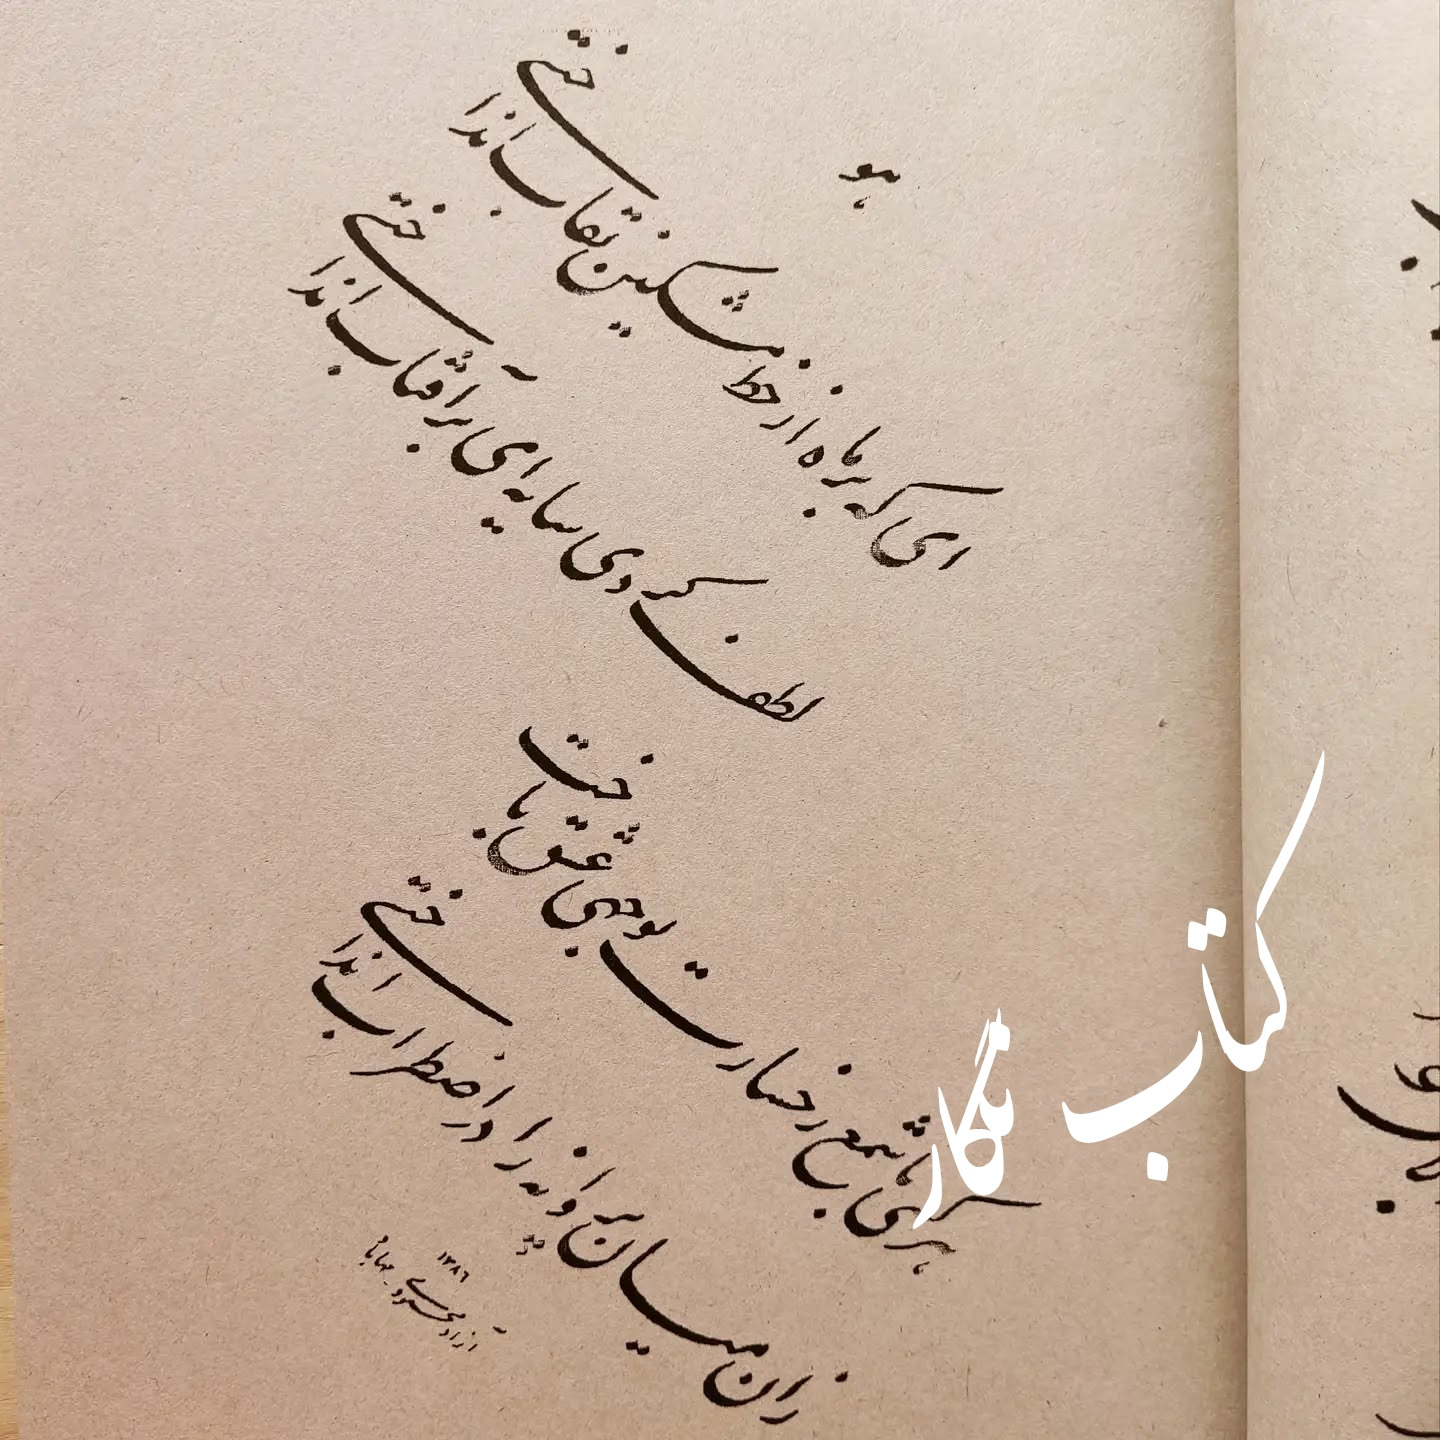 هو
ای که بر ماه از خط مشکین نقاب انداختی
لطف کردی سایه ای بر آفتاب انداختی
هر کسی با شمع رخسارت بوجهی عشق باخت
زان میان پروانه را در اضطراب انداختی
آزاد محمودی
۱۳۸۶
کتاب نگار